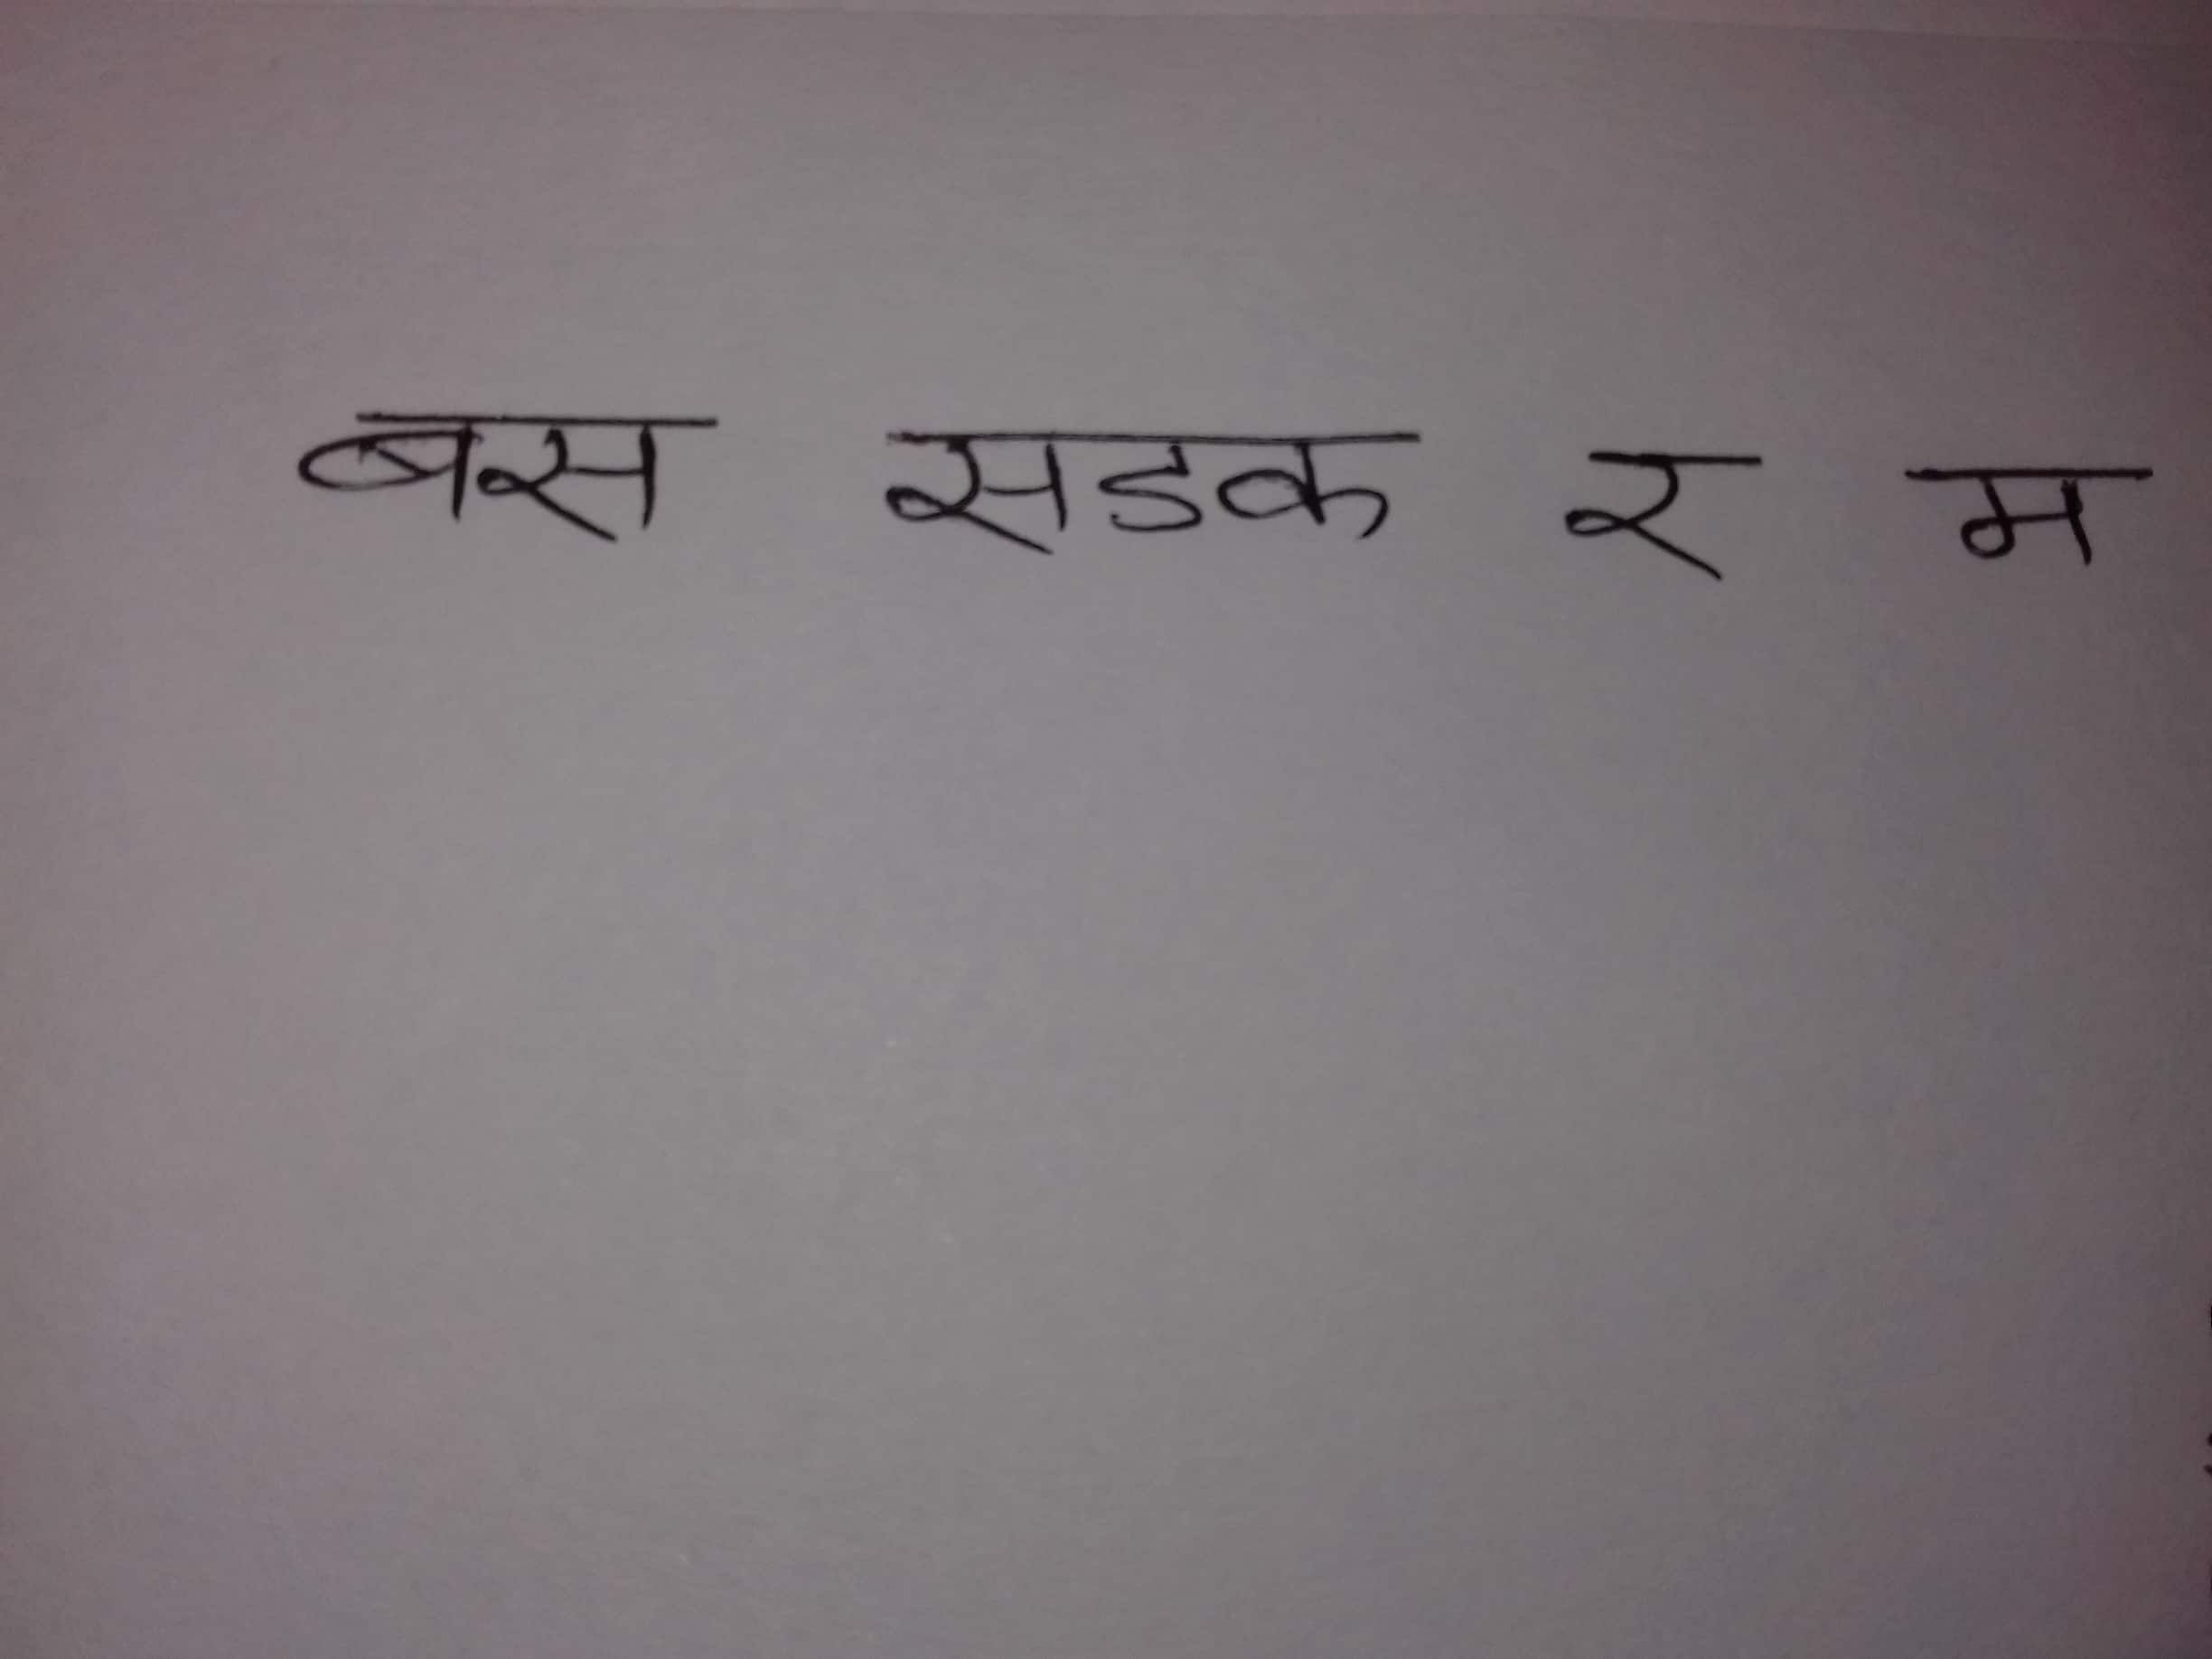 बस सडक र म